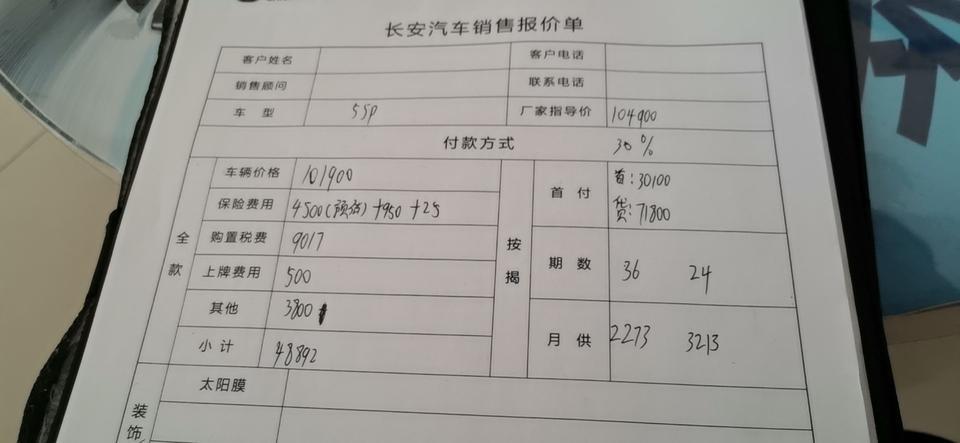 长安汽车销售报价单
客户姓名 客户电话
销售顾问 联系电话
车 型 55P 厂家指导价 104900
付款方式 30%
全款
车辆价格 101900
保险费用 4500(预估)+950+25
购置税费 9017
上牌费用 500
其他 3800
小计 48892
按揭
首 付 首:30100
贷:71800
期 数 36 24
月 供 2273 3213
装饰
太阳膜